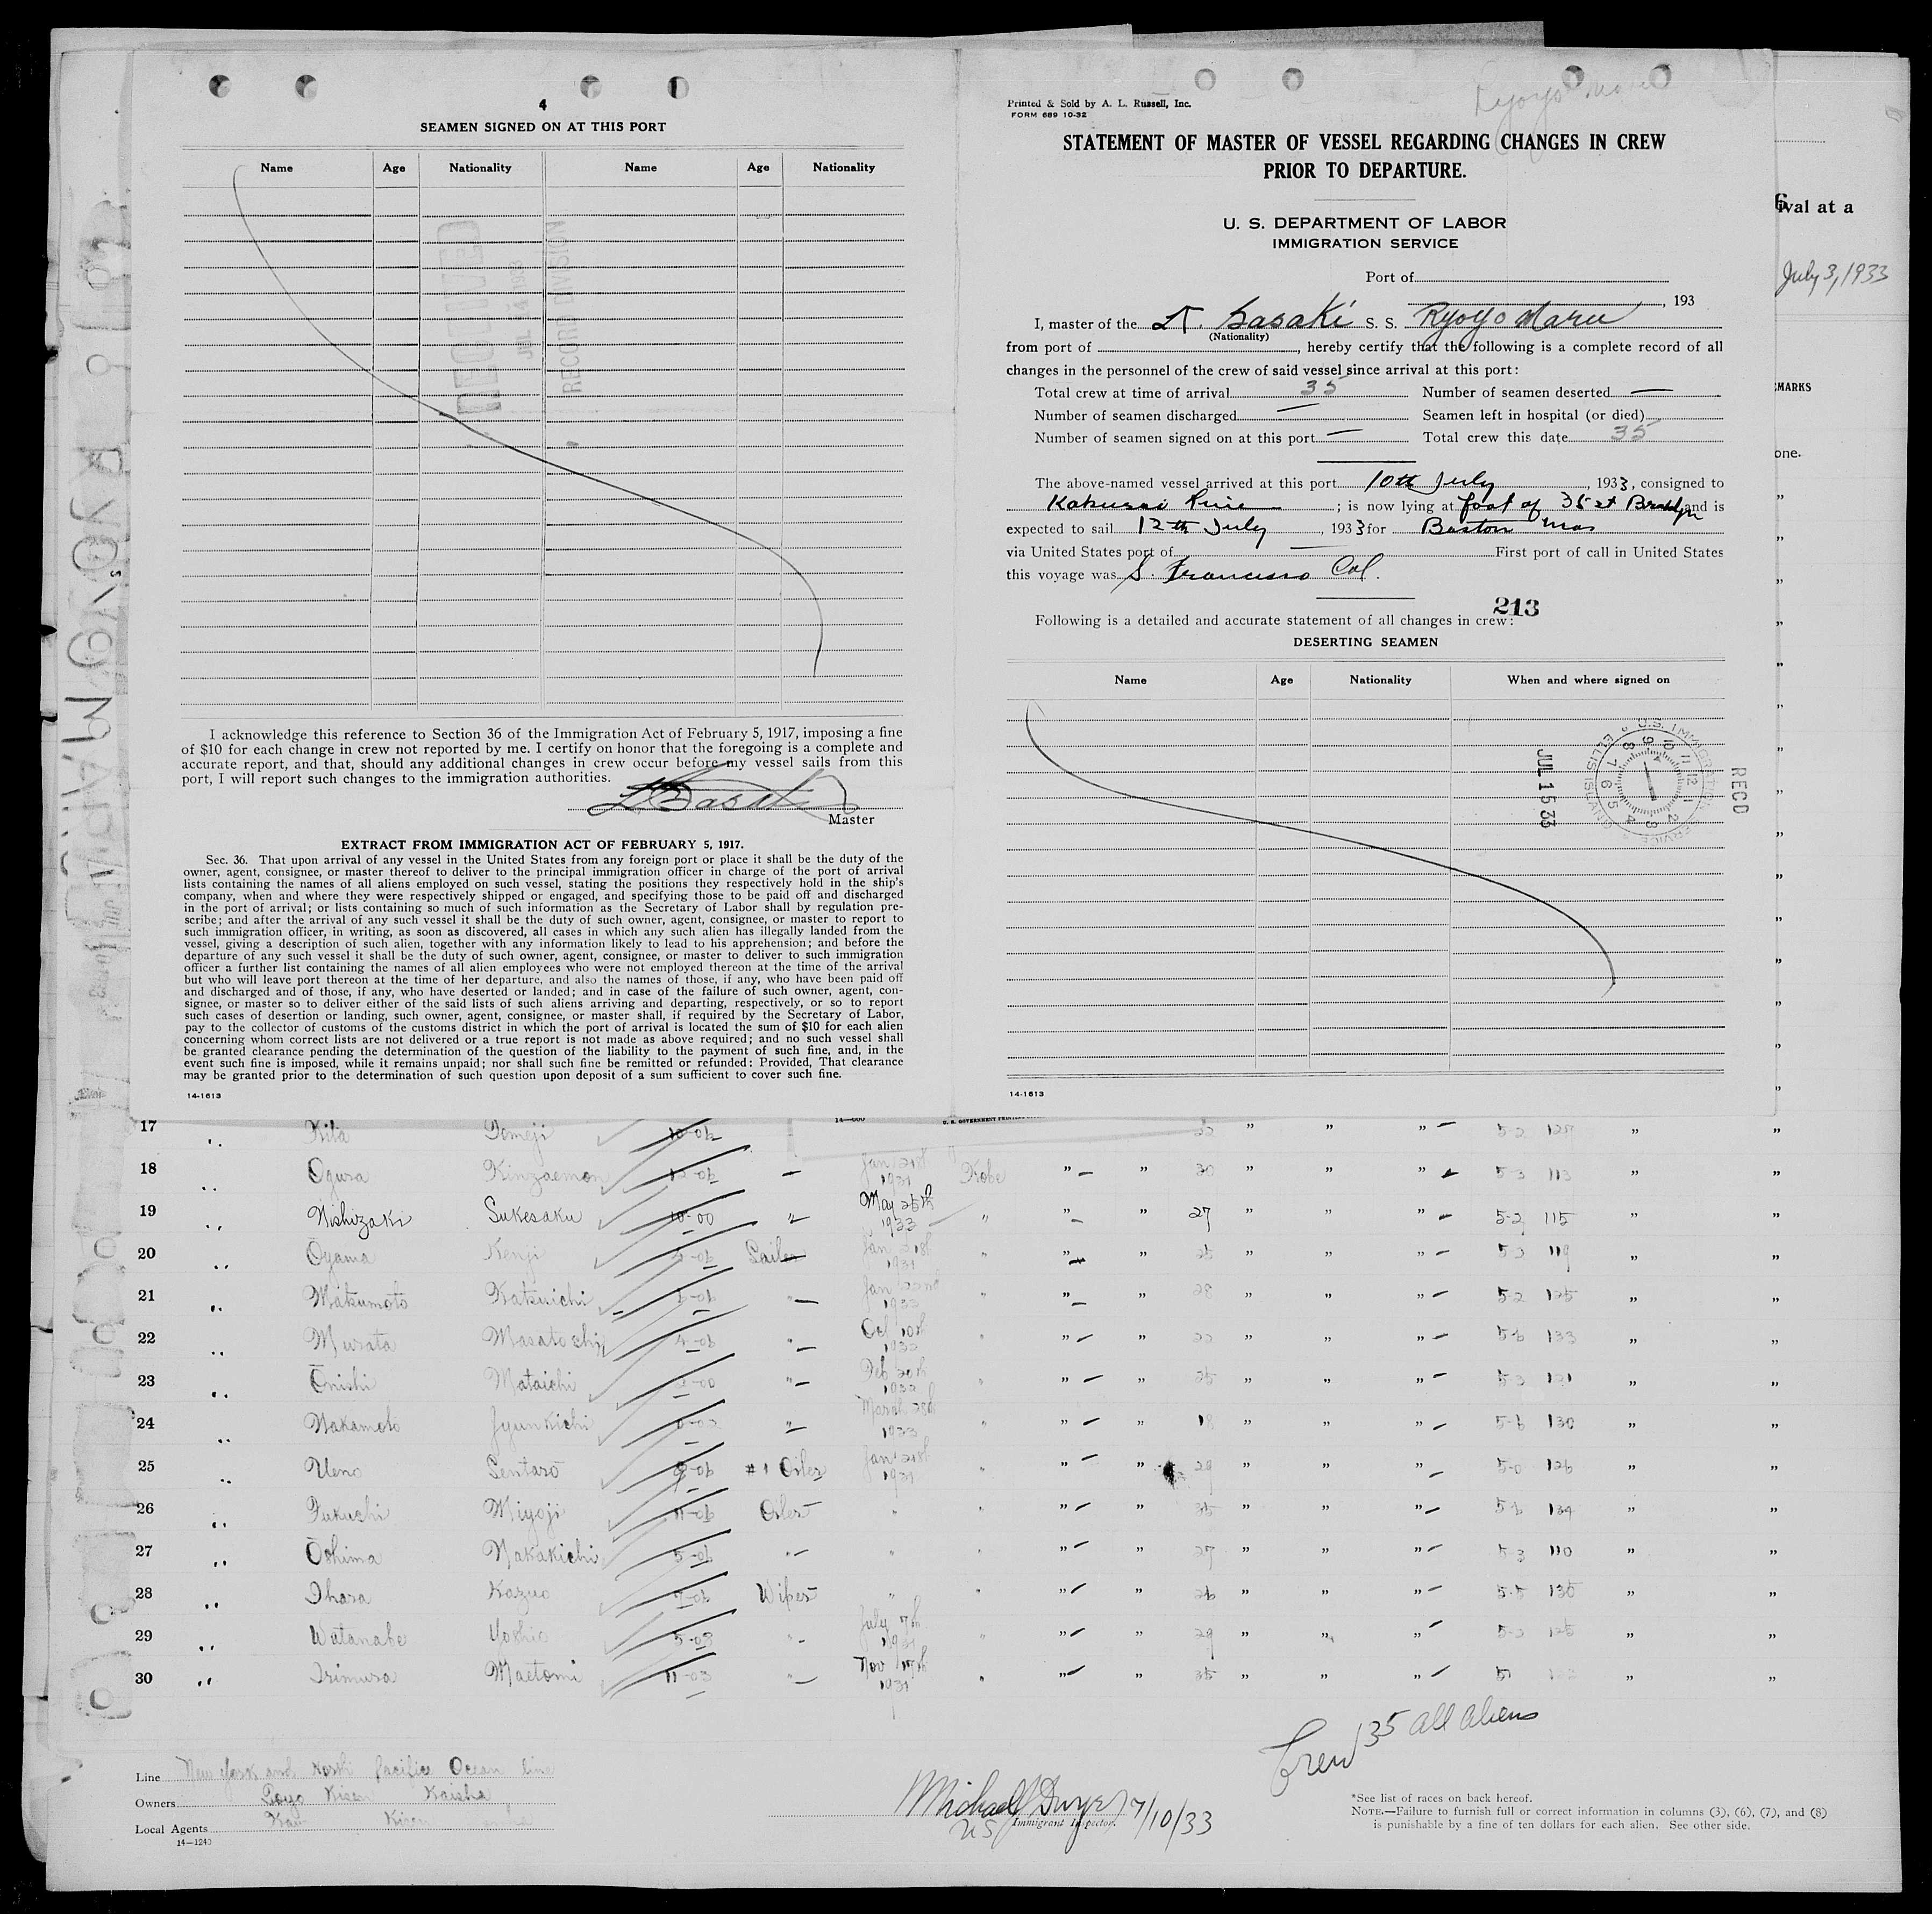 4
SEAMEN SIGNED ON AT THIS PORT
Name Age Nationality Name Age Nationality
RECORD DIVISION
I acknowledge this reference to Section 36 of the Immigration Act of February 5, 1917, imposing a fine
of $10 for each change in crew not reported by me. I certify on honor that the foregoing is a complete and
accurate report, and that, should any additional changes in crew occur before my vessel sails from this
port, I will report such changes to the immigration authorities.
Master
EXTRACT FROM IMMIGRATION ACT OF FEBRUARY 5, 1917.
Sec. 36. That upon arrival of any vessel in the United States from any foreign port or place it shall be the duty of the
owner, agent, consignee, or master thereof to deliver to the principal immigration officer in charge of the port of arrival
lists containing the names of all aliens employed on such vessel, stating the positions they respectively hold in the ship's
company, when and where they were respectively shipped or engaged, and specifying those to be paid off and discharged
in the port of arrival; or lists containing so much of such information as the Secretary of Labor shall by regulation pre-
scribe; and after the arrival of any such vessel it shall be the duty of such owner, agent, consignee, or master to report to
such immigration officer, in writing, as soon as discovered, all cases in which any such alien has illegally landed from the
vessel, giving a description of such alien, together with any information likely to lead to his apprehension; and before the
departure of any such vessel it shall be the duty of such owner, agent, consignee, or master to deliver to such immigration
officer a further list containing the names of all alien employees who were not employed thereon at the time of the arrival
but who will leave port thereon at the time of her departure, and also the names of those, if any, who have been paid off
and discharged and of those, if any, who have deserted or landed; and in case of the failure of such owner, agent, con-
signee, or master so to deliver either of the said lists of such aliens arriving and departing, respectively, or so to report
such cases of desertion or landing, such owner, agent, consignee, or master shall, if required by the Secretary of Labor,
pay to the collector of customs of the customs district in which the port of arrival is located the sum of $10 for each alien
concerning whom correct lists are not delivered or a true report is not made as above required; and no such vessel shall
be granted clearance pending the determination of the question of the liability to the payment of such fine, and, in the
event such fine is imposed, while it remains unpaid; nor shall such fine be remitted or refunded: Provided, That clearance
may be granted prior to the determination of such question upon deposit of a sum sufficient to cover such fine.
14-1613
Printed & Sold by A. L. Russell, Inc.
FORM 689 10-32
STATEMENT OF MASTER OF VESSEL REGARDING CHANGES IN CREW
PRIOR TO DEPARTURE.
U. S. DEPARTMENT OF LABOR
IMMIGRATION SERVICE
Port of
, 193
I, master of the Sasaki S. S. Ryoyo Maru
(Nationality)
from port of , hereby certify that the following is a complete record of all
changes in the personnel of the crew of said vessel since arrival at this port:
Total crew at time of arrival 35 Number of seamen deserted —
Number of seamen discharged — Seamen left in hospital (or died)
Number of seamen signed on at this port — Total crew this date 35
The above-named vessel arrived at this port 10th July , 1933, consigned to
Line ; is now lying at foot of 35 st Brooklyn and is
expected to sail 12th July , 1933 for Boston Mas
via United States port of — First port of call in United States
this voyage was S. Francisco Cal.
213
Following is a detailed and accurate statement of all changes in crew:
DESERTING SEAMEN
Name Age Nationality When and where signed on
U.S. IMMIGRATION SERVICE ELLIS ISLAND
JUL 15 33
RECD
14-1613
ival at a
July 3, 1933
MARKS
one.
17 Kita Tomeji 10-06 " " " 5-2 "
18 Ogura Kinzaemon 12-06 — Jan 21st 1931 Kobe " " 30 " " " 5-3 113 " "
19 Nishizaki Sukesaku 10-00 " May 25th 1933 " " " 27 " " " 5-2 115 " "
20 Oyama Kenji Sailor Jan 21st 1931 " " " 25 " " " 5-3 119 " "
21 Matsumoto Katsuichi — Jan 22nd 1933 " " " 28 " " " 5-2 125 " "
22 Murata Masatochi 4-06 " Oct 10th 1932 " " " " " " 5-6 133 " "
23 Onishi Mataichi " Feb 20th 1932 " " " 25 " " " 5-3 121 " "
24 Nakamoto Jyunkichi " March 28th 1933 " " " 18 " " " 5-6 130 " "
25 Ueno Sentaro #1 Oiler Jan 21st 1931 " " " 29 " " " 5-0 126 " "
26 Fukuchi Miyoji 11-06 Oiler " " " " 35 " " " 134 " "
27 Oshima Nakakichi 5-06 " " " " " 27 " " " 5-3 110 " "
28 Ihara Kazuo 7-06 Wiper " " " " 26 " " " 5-5 135 " "
29 Watanabe Yoshio 5-03 " July 7th 1931 " " " 29 " " " 125 " "
30 Irimura Maetomi 11-03 " Nov 17th 1931 " " " 35 " " " " "
Crew 35 all aliens
Line New York and North Pacific Ocean line
Owners Toyo Kisen Kaisha
Local Agents Kisen
14-1240
Michael J Dwyer 7/10/33
US Immigrant Inspector.
*See list of races on back hereof.
NOTE.—Failure to furnish full or correct information in columns (3), (6), (7), and (8)
is punishable by a fine of ten dollars for each alien. See other side.